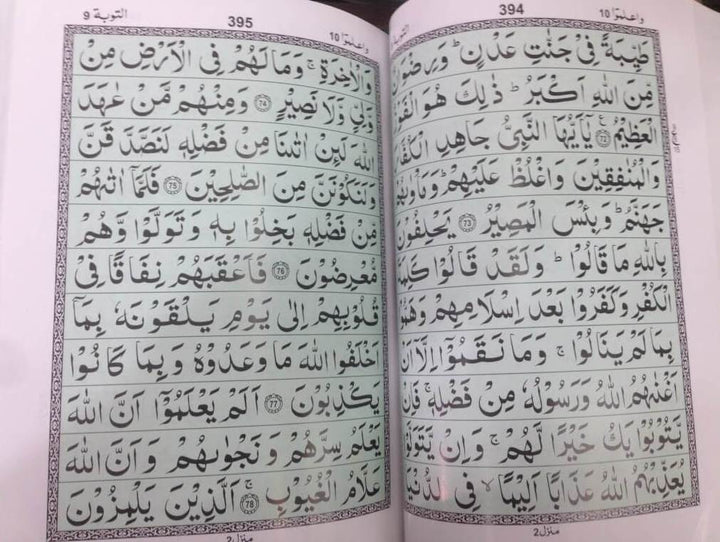 واعلموٓا 10
394
طَيِّبَةً فِيْ جَنّٰتِ عَدْنٍ ؕ وَرِضْوَانٌ
مِّنَ اللّٰهِ اَكْبَرُ ؕ ذٰلِكَ هُوَ الْفَوْ
الْعَظِيْمُ ﴿72﴾ يٰۤاَيُّهَا النَّبِيُّ جَاهِدِ الْكُفَّا
وَالْمُنٰفِقِيْنَ وَاغْلُظْ عَلَيْهِمْ ؕ وَمَاْوٰىهُمْ
جَهَنَّمُ ؕ وَبِئْسَ الْمَصِيْرُ ﴿73﴾ يَحْلِفُوْنَ
بِاللّٰهِ مَا قَالُوْا ؕ وَلَقَدْ قَالُوْا كَلِمَ
الْكُفْرِ وَكَفَرُوْا بَعْدَ اِسْلَامِهِمْ وَهَمُّ
بِمَا لَمْ يَنَالُوْا ۚ وَمَا نَقَمُوْۤا اِلَّاۤ اَنْ
اَغْنٰىهُمُ اللّٰهُ وَرَسُوْلُهٗ مِنْ فَضْلِهٖ ۚ فَاِنْ
يَّتُوْبُوْا يَكُ خَيْرًا لَّهُمْ ۚ وَاِنْ يَّتَوَلَّ
يُعَذِّبْهُمُ اللّٰهُ عَذَابًا اَلِيْمًا ۙ فِي الدُّنْيَا
منزل2
واعلموٓا 10
395
التوبة 9
وَالْاٰخِرَةِ ۚ وَمَا لَهُمْ فِي الْاَرْضِ مِنْ
وَّلِيٍّ وَّلَا نَصِيْرٍ ﴿74﴾ وَمِنْهُمْ مَّنْ عٰهَدَ
اللّٰهَ لَئِنْ اٰتٰىنَا مِنْ فَضْلِهٖ لَنَصَّدَّقَنَّ
وَلَنَكُوْنَنَّ مِنَ الصّٰلِحِيْنَ ﴿75﴾ فَلَمَّاۤ اٰتٰىهُمْ
مِّنْ فَضْلِهٖ بَخِلُوْا بِهٖ وَتَوَلَّوْا وَّهُمْ
مُّعْرِضُوْنَ ﴿76﴾ فَاَعْقَبَهُمْ نِفَاقًا فِيْ
قُلُوْبِهِمْ اِلٰى يَوْمِ يَلْقَوْنَهٗ بِمَاۤ
اَخْلَفُوا اللّٰهَ مَا وَعَدُوْهُ وَبِمَا كَانُوْا
يَكْذِبُوْنَ ﴿77﴾ اَلَمْ يَعْلَمُوْۤا اَنَّ اللّٰهَ
يَعْلَمُ سِرَّهُمْ وَنَجْوٰىهُمْ وَاَنَّ اللّٰهَ
عَلَّامُ الْغُيُوْبِ ﴿78﴾ اَلَّذِيْنَ يَلْمِزُوْنَ
منزل2